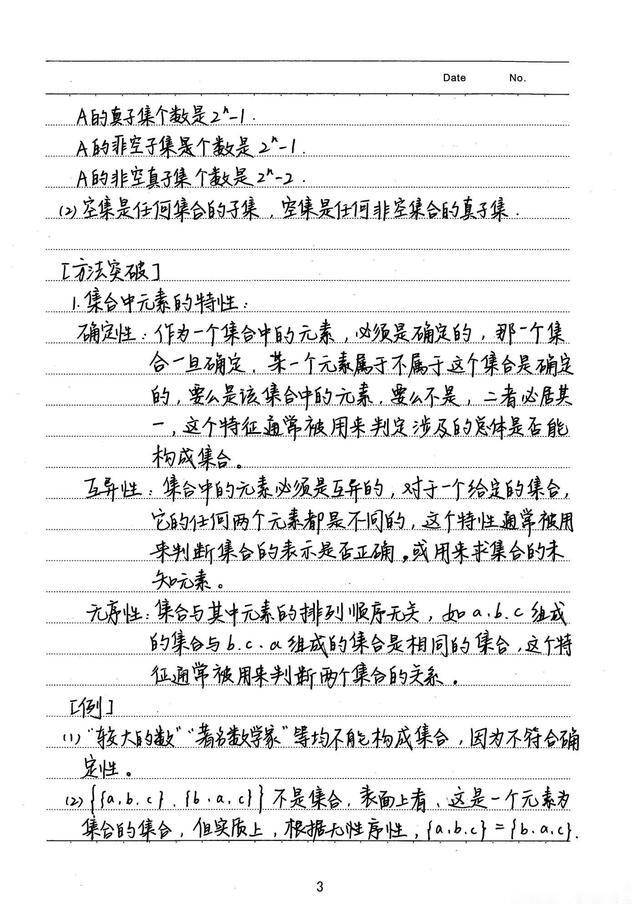 Date No.
A的真子集个数是2ⁿ-1.
A的非空子集是个数是2ⁿ-1.
A的非空真子集个数是2ⁿ-2.
(2) 空集是任何集合的子集，空集是任何非空集合的真子集.
[方法突破]
1.集合中元素的特性：
确定性：作为一个集合中的元素，必须是确定的，那一个集
合一旦确定，某一个元素属于不属于这个集合是确定
的，要么是该集合中的元素，要么不是，二者必居其
一，这个特征通常被用来判定涉及的总体是否能
构成集合。
互异性：集合中的元素必须是互异的，对于一个给定的集合，
它的任何两个元素都是不同的，这个特性通常被用
来判断集合的表示是否正确。或用来求集合的未
知元素。
无序性：集合与其中元素的排列顺序无关，如a.b.c组成
的集合与b.c.a组成的集合是相同的集合，这个特
征通常被用来判断两个集合的关系。
[例]
(1)“较大的数”“著名数学家”等均不能构成集合，因为不符合确
定性。
(2) {{a.b.c}.{b.a.c}}不是集合，表面上看，这是一个元素为
集合的集合，但实质上，根据无性序性，{a.b.c}={b.a.c}.
3